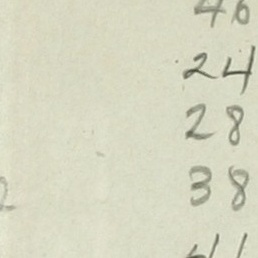 46
24
28
38